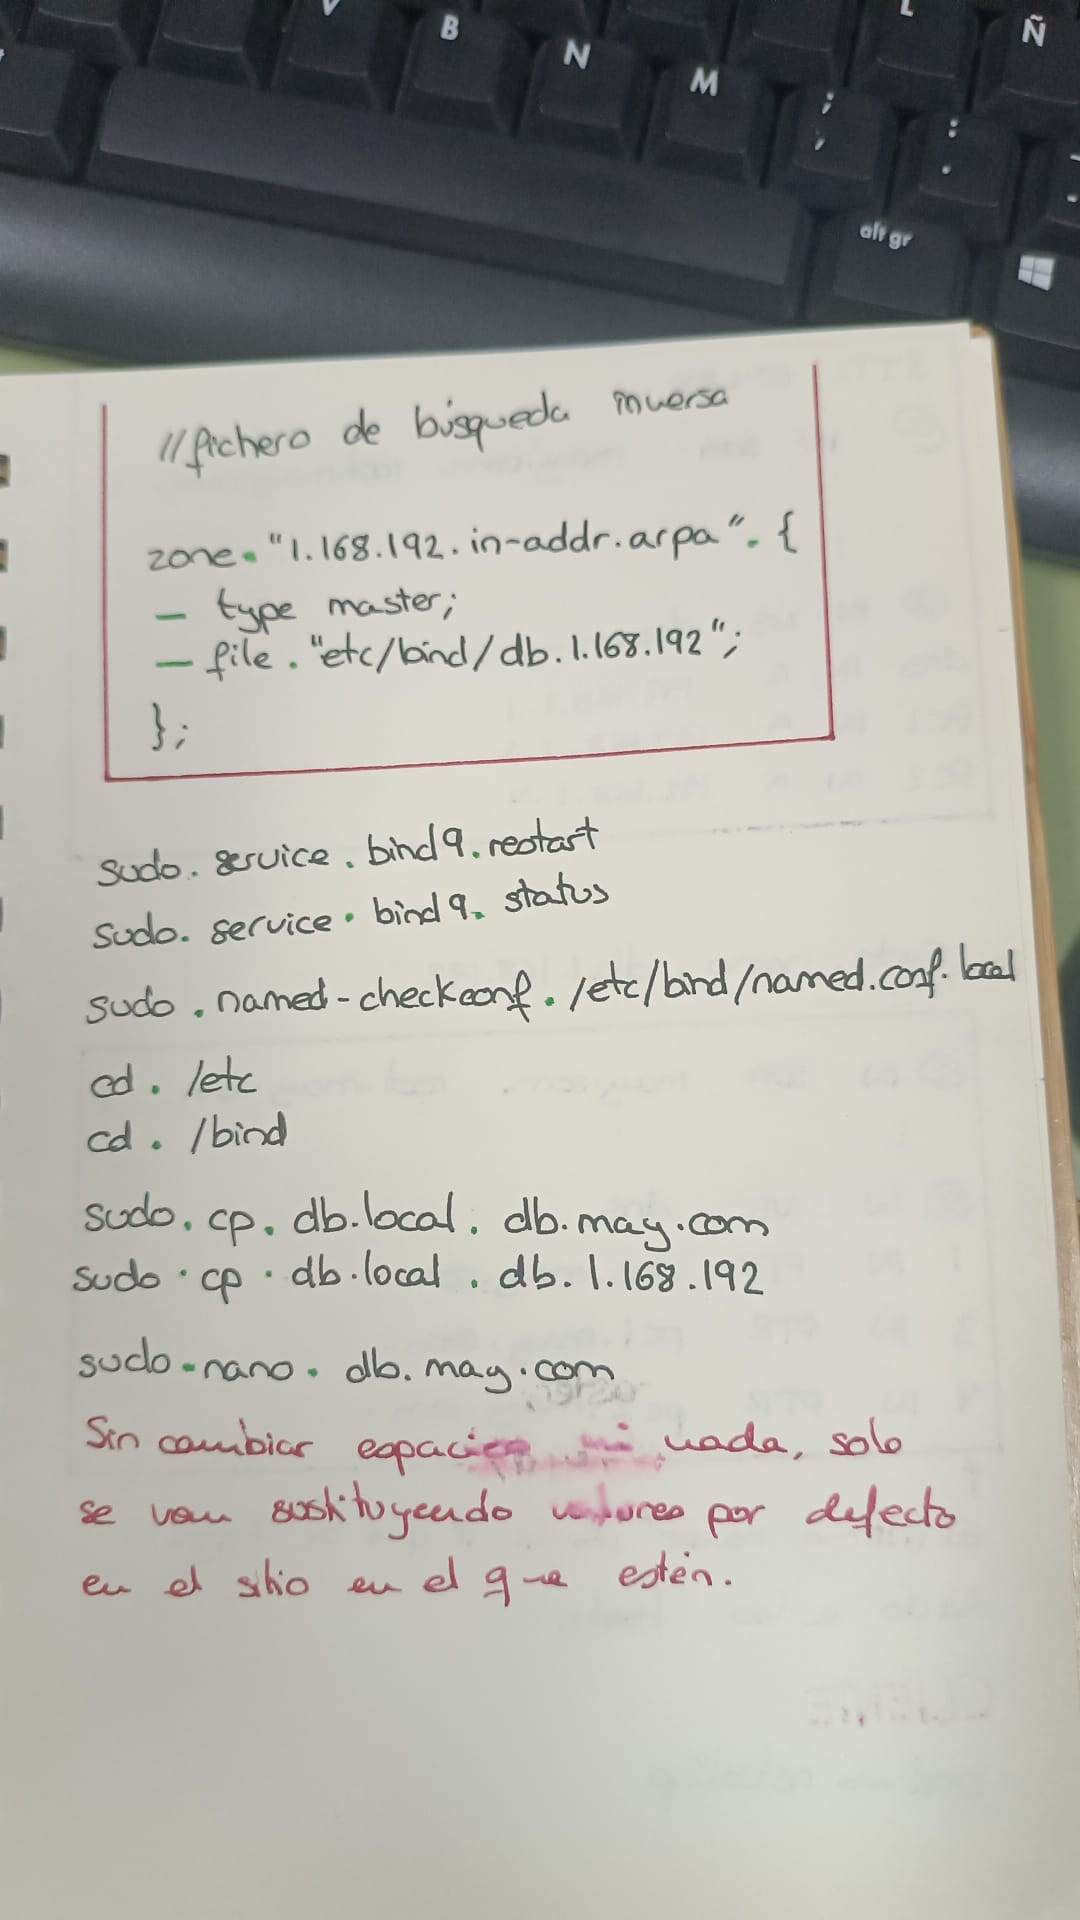 B
N
M
L
Ñ
;
,
:
.
alt gr
//fichero de búsqueda inversa
zone. "1.168.192.in-addr.arpa". {
— type master;
— file . "etc/bind/db.1.168.192";
};
sudo. service. bind9. restart
sudo. service. bind9. status
sudo . named-checkconf. /etc/bind/named.conf.local
cd . /etc
cd . /bind
sudo. cp. db.local. db.may.com
sudo . cp . db.local . db.1.168.192
sudo . nano . db.may.com
Sin cambiar espacios ni nada, solo
se van sustituyendo valores por defecto
en el sitio en el que estén.